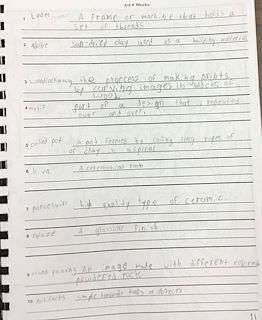 3rd 6 Weeks
1 Loom A frame or machine that holds a
set of threads
2 Adobe sun dried clay used as a building material
3 the process of making prints
by carving images in blocks of
wood.
4 motif part of a design that is repeated
over and over.
5 coiled pot a pot formed by coiling long ropes of
of clay in a spiral
6 kiva A ceremonial room
7 porcelain high quality type of ceramic.
8 glaze A glasslike finish.
9 sand painting An image made with different colored
powdered rock.
10 Artifacts simple handmade tools or objects
11